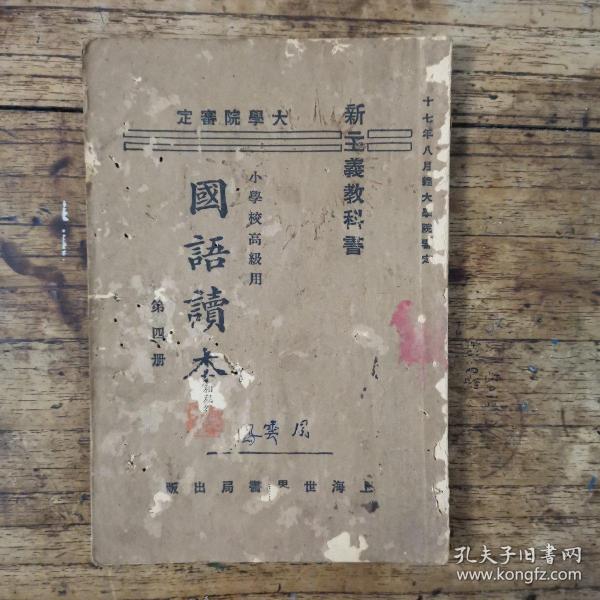 十七年八月經大學院審定
新主義教科書
大學院審定
小學校高級用
國語讀本
第四册
上海世界書局出版
孔夫子旧书网
www.kongfz.com